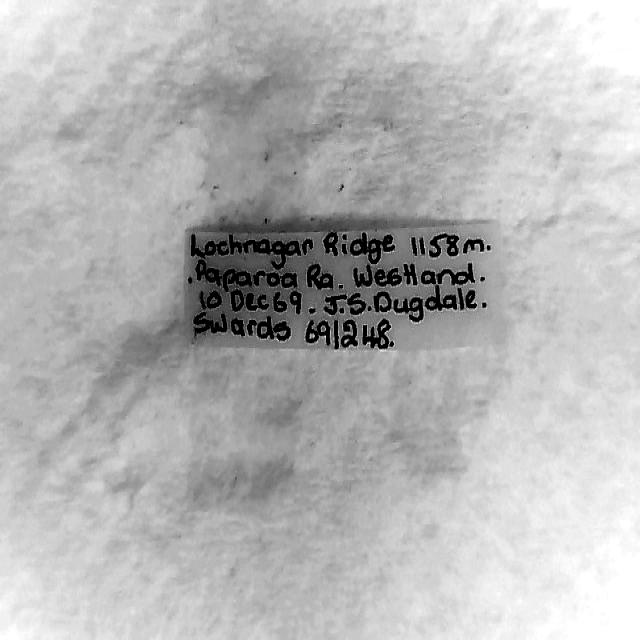 Lochnagar Ridge 1158m.
Paparoa Ra. Westland.
10 Dec 69. J.S. Dugdale.
Swards 69/248.